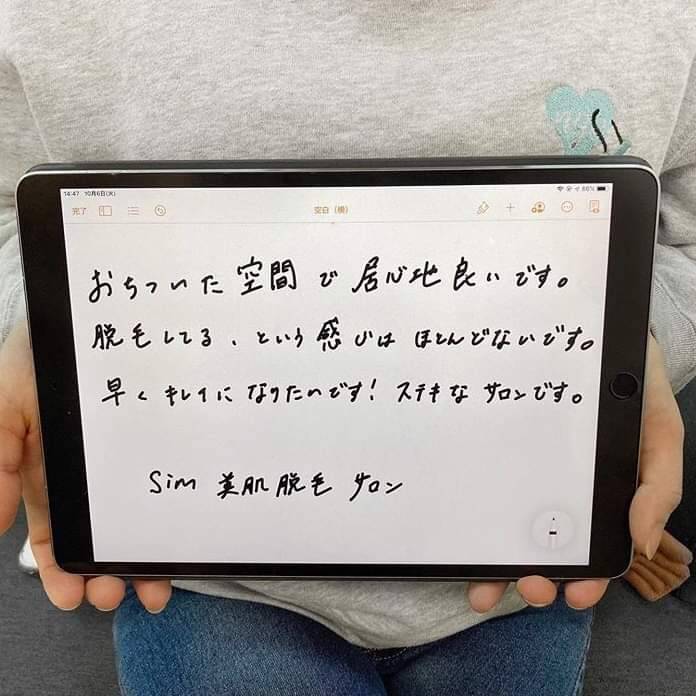 14:47 10月6日(火)
86%
完了
空白（横）
おちついた空間で居心地良いです。
脱毛してる、という感じはほとんどないです。
早くキレイになりたいです！ステキなサロンです。
Sim 美肌脱毛サロン